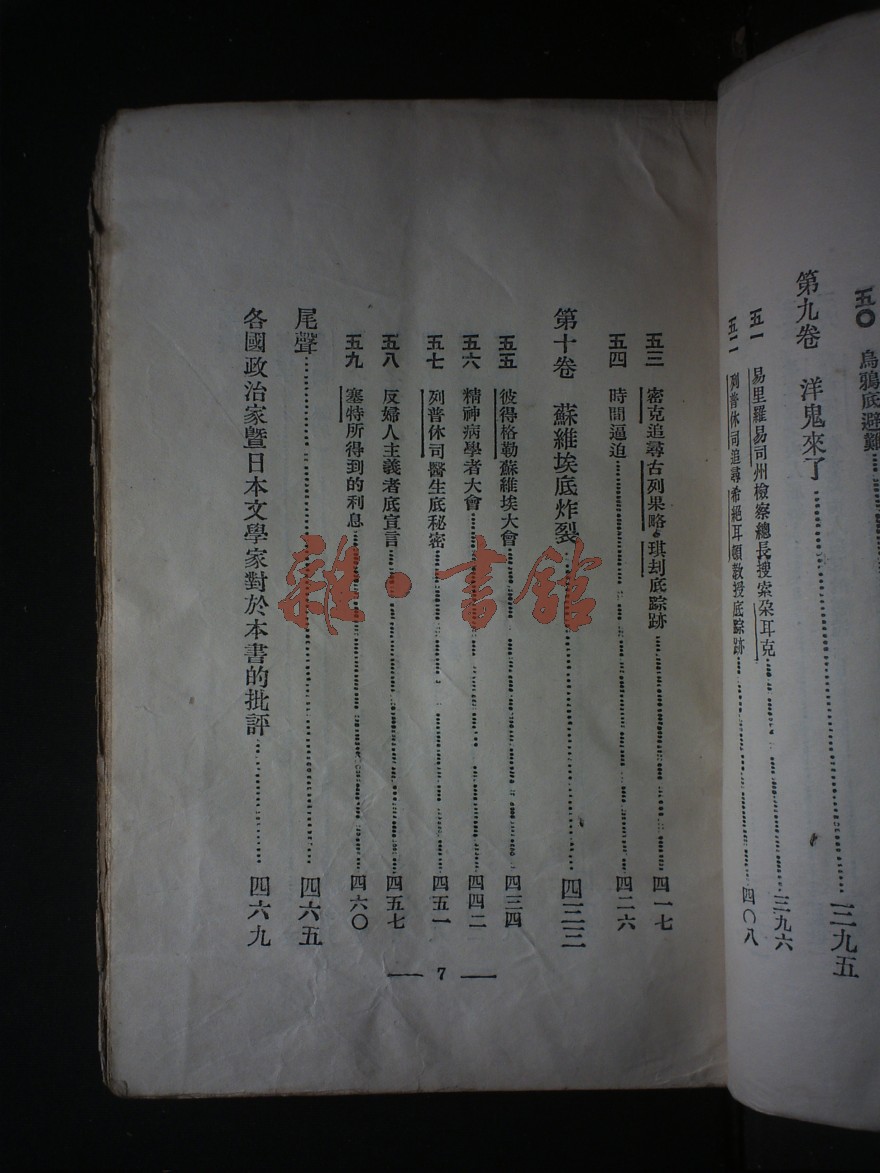 五〇 烏鴉底避難
第九卷 洋鬼來了 三九五
五一 易里羅易司州檢察總長搜索朶耳克 三九六
五二 列普休司追尋希絕耳頓教授底踪跡 四〇八
五三 密克追尋古列果略·琪刦底踪跡 四一七
五四 時間逼迫 四二六
第十卷 蘇維埃底炸裂 四三三
五五 彼得格勒蘇維埃大會 四三四
五六 精神病學者大會 四四二
五七 列普休司醫生底秘密 四五一
五八 反婦人主義者底宣言 四五七
五九 塞特所得到的利息 四六〇
尾聲 四六五
各國政治家暨日本文學家對於本書的批評 四六九
7
雜·書館